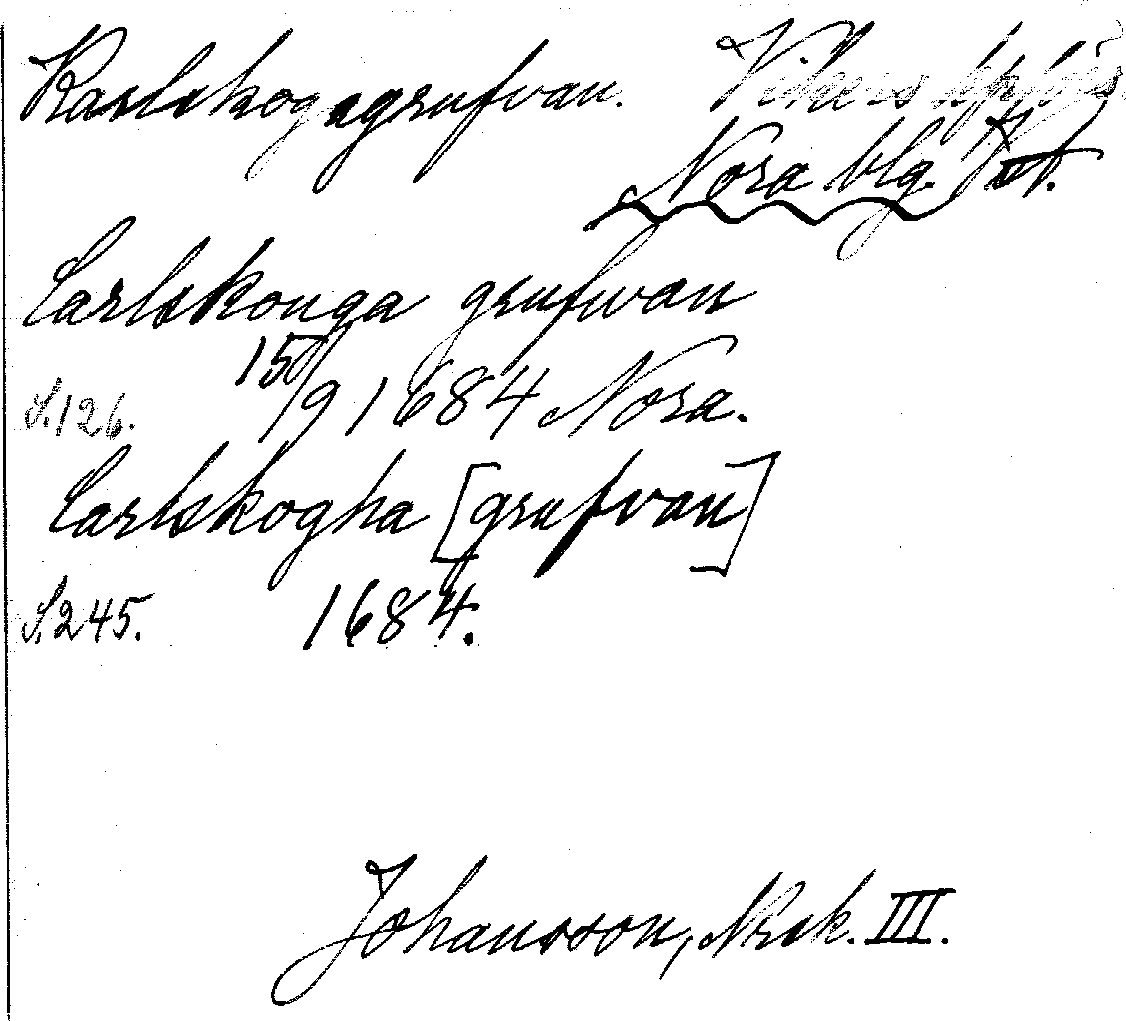 Karlskogagrufvan. Vikers kplförs.
Nora blg. Vst.
Carlskouga grufwan
S.126. 15/9 1684 Nora.
Carlskogha [grufvan]
S.245. 1684.
Johansson, Nrsk. III.